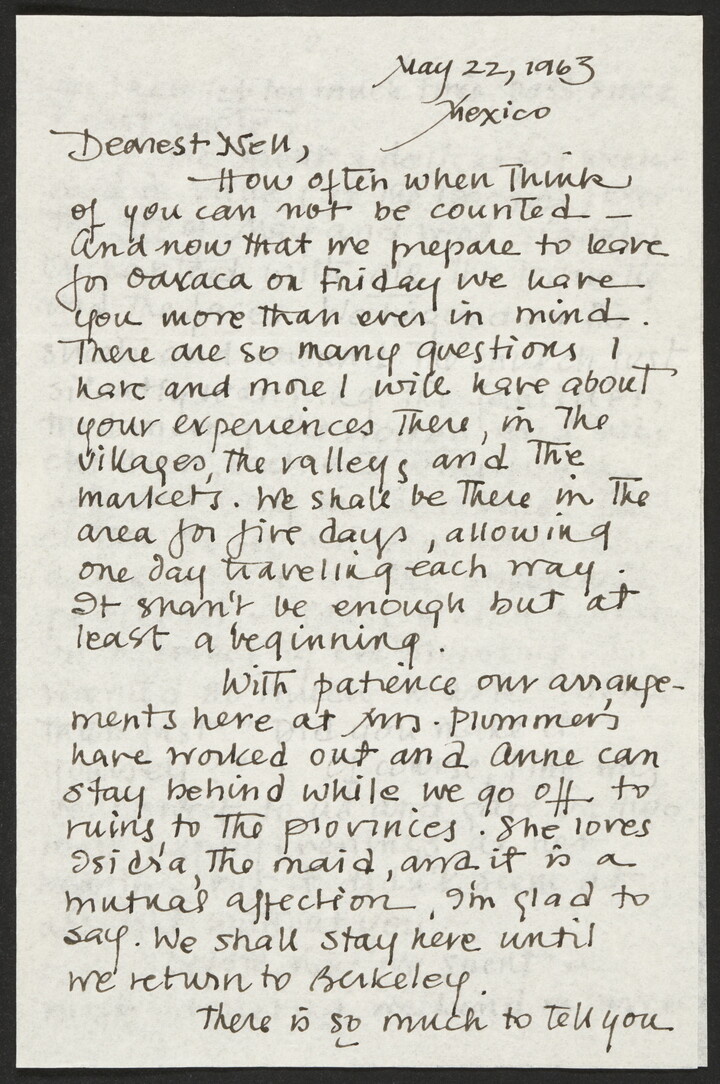 May 22, 1963
Mexico
Dearest Nell,
How often when I think
of you can not be counted —
And now that we prepare to leave
for Oaxaca on Friday we have
you more than ever in mind.
There are so many questions I
have and more I will have about
your experiences there, in the
villages, the valleys and the
markets. We shall be there in the
area for five days, allowing
one day traveling each way.
It shan't be enough but at
least a beginning.
With patience our arrange-
ments here at Mrs. Plummer's
have worked out and Anne can
stay behind while we go off to
ruins, to the provinces. She loves
Isidra, the maid, and it is a
mutual affection, I'm glad to
say. We shall stay here until
we return to Berkeley.
There is so much to tell you